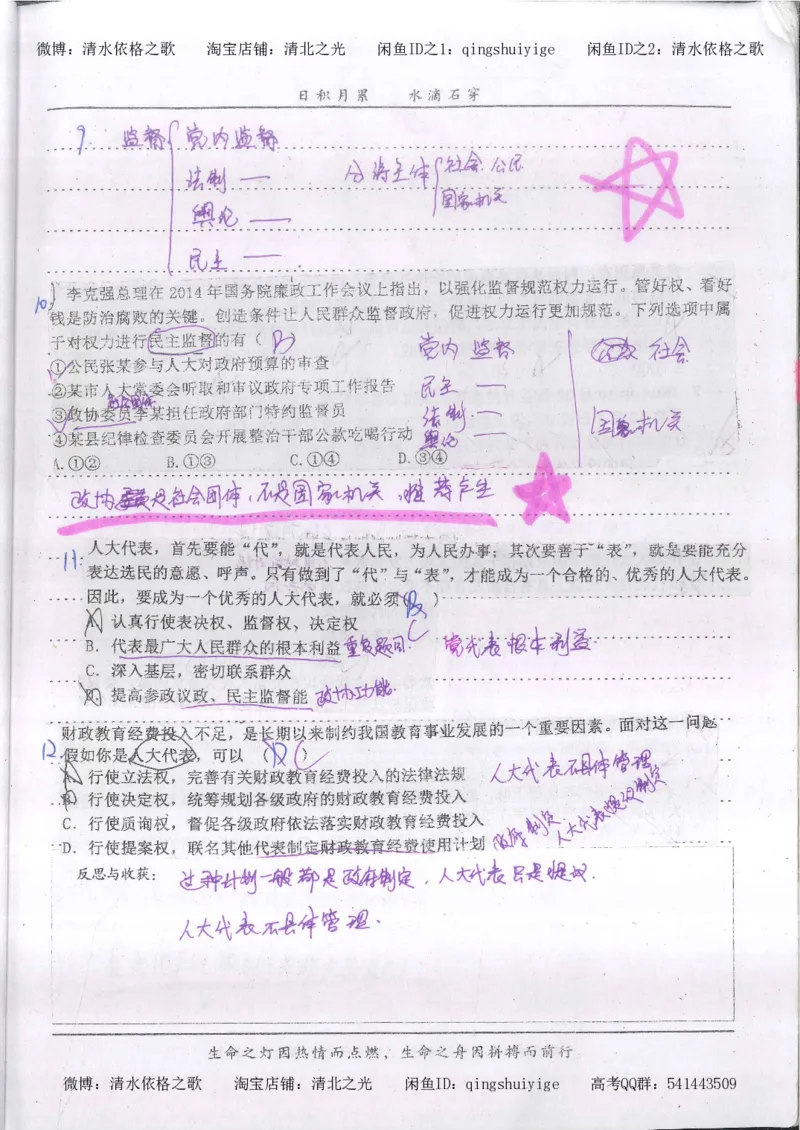 微博：清水依格之歌　　淘宝店铺：清北之光　　闲鱼ID之1：qingshuiyige　　闲鱼ID之2：清水依格之歌
日积月累　　水滴石穿
9. 监督 党内监督
法制 —
舆论 —
民主 —
分清主体 社会 公民
国家机关
10. 李克强总理在 2014 年国务院廉政工作会议上指出，以强化监督规范权力运行。管好权、看好
钱是防治腐败的关键。创造条件让人民群众监督政府，促进权力运行更加规范。下列选项中属
于对权力进行民主监督的有（ B ）
①公民张某参与人大对政府预算的审查
②某市人大常委会听取和审议政府专项工作报告
③政协委员李某担任政府部门特约监督员
④某县纪律检查委员会开展整治干部公款吃喝行动
A.①② B.①③ C.①④ D.③④
党内 监督
民主 —
法制 —
舆论 —
社会
国家机关
政协是社会团体，不是国家机关，推荐产生
11. 人大代表，首先要能“代”，就是代表人民，为人民办事；其次要善于“表”，就是要能充分
表达选民的意愿、呼声。只有做到了“代”与“表”，才能成为一个合格的、优秀的人大代表。
因此，要成为一个优秀的人大代表，就必须（B）
C
A. 认真行使表决权、监督权、决定权
B. 代表最广大人民群众的根本利益 重复题目. 党代表根本利益.
C. 深入基层，密切联系群众
D. 提高参政议政、民主监督能 政协功能.
财政教育经费投入不足，是长期以来制约我国教育事业发展的一个重要因素。面对这一问题
12. 假如你是人大代表，可以 （D） C
A. 行使立法权，完善有关财政教育经费投入的法律法规
B. 行使决定权，统筹规划各级政府的财政教育经费投入
C. 行使质询权，督促各级政府依法落实财政教育经费投入
D. 行使提案权，联名其他代表制定财政教育经费使用计划
人大代表不具体管理.
反思与收获： 这种计划一般都是政府制定，人大代表只是提议.
人大代表不具体管理.
生命之灯因热情而点燃，生命之舟因拼搏而前行
微博：清水依格之歌　　淘宝店铺：清北之光　　闲鱼ID：qingshuiyige　　高考QQ群：541443509